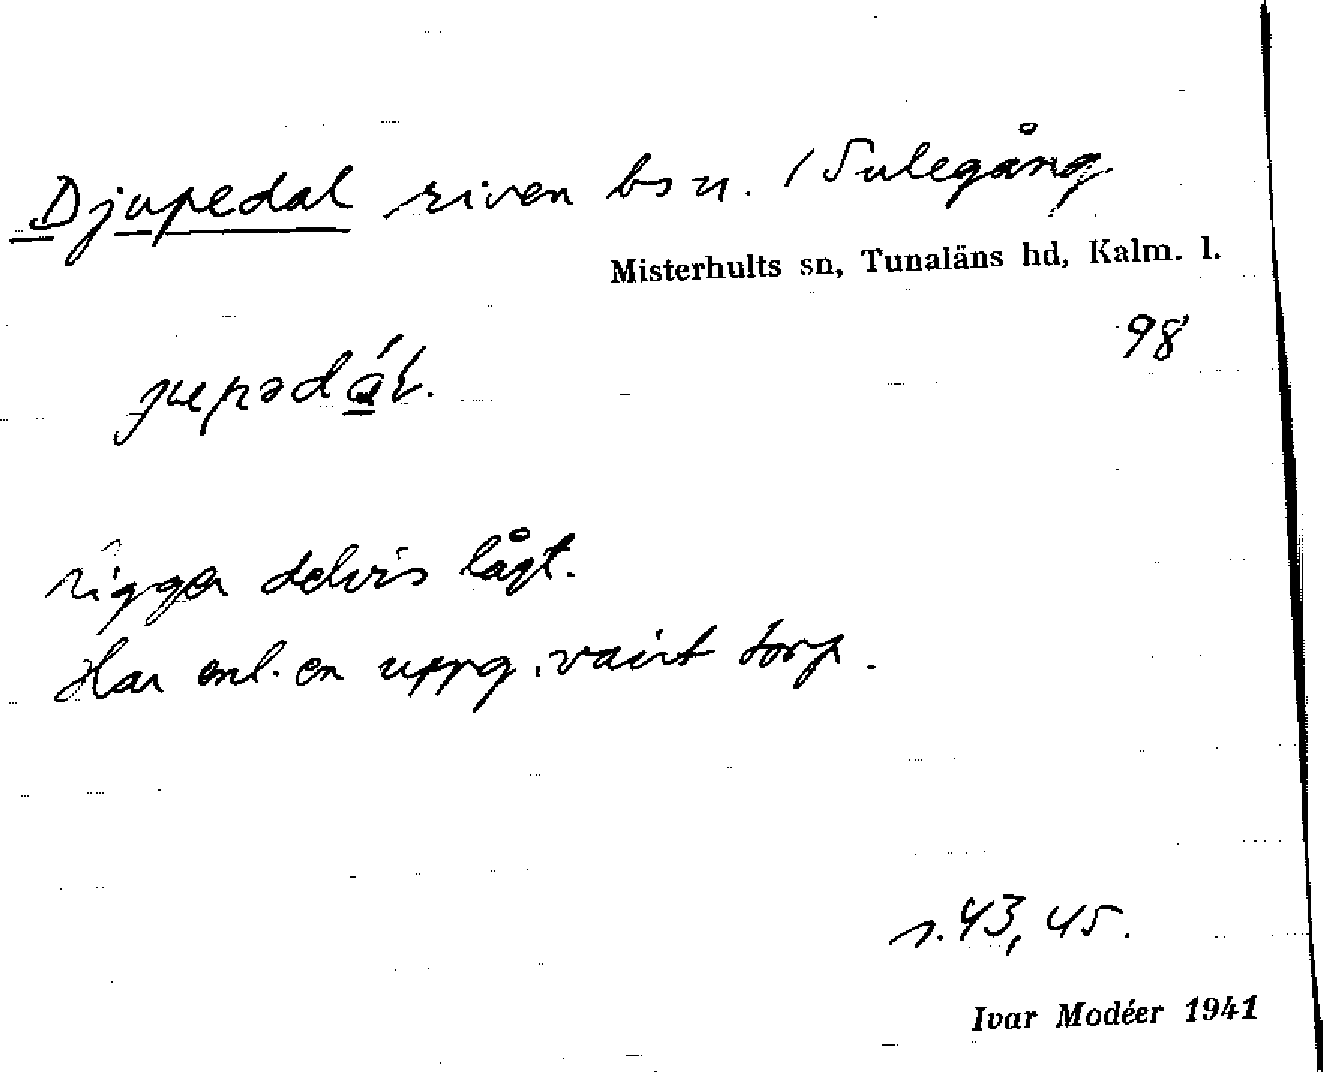 Djupedal riven bsn. / Sulegång
Misterhults sn, Tunaläns hd, Kalm. l.
98
jupədál.
ligger delvis lågt.
Har enl. en uppg. varit torp.
s. 43, 45.
Ivar Modéer 1941